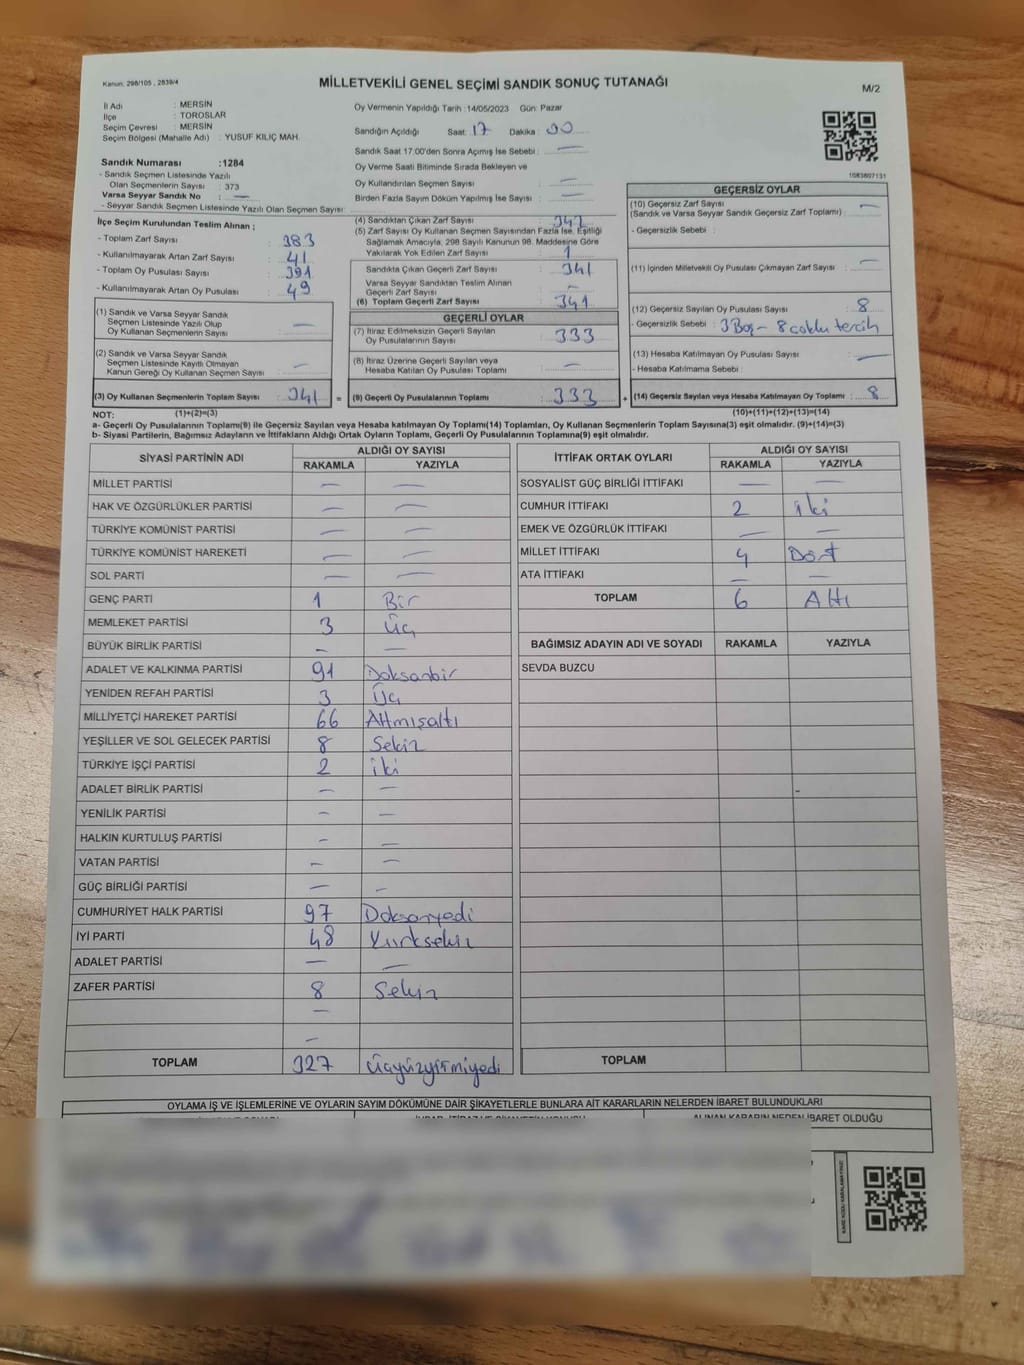 Kanun: 298/105 , 2839/4
MİLLETVEKİLİ GENEL SEÇİMİ SANDIK SONUÇ TUTANAĞI
M/2
İl Adı : MERSİN
İlçe : TOROSLAR
Seçim Çevresi : MERSİN
Seçim Bölgesi (Mahalle Adı) : YUSUF KILIÇ MAH.
Sandık Numarası :1284
- Sandık Seçmen Listesinde Yazılı
Olan Seçmenlerin Sayısı : 373
Varsa Seyyar Sandık No : —
- Seyyar Sandık Seçmen Listesinde Yazılı Olan Seçmen Sayısı:
Oy Vermenin Yapıldığı Tarih :14/05/2023 Gün: Pazar
Sandığın Açıldığı Saat: 17 Dakika : 00
Sandık Saat 17:00'den Sonra Açılmış İse Sebebi : —
Oy Verme Saati Bitiminde Sırada Bekleyen ve
Oy Kullandırılan Seçmen Sayısı : —
Birden Fazla Sayım Döküm Yapılmış İse Sayısı : —
1083807131
İlçe Seçim Kurulundan Teslim Alınan ;
- Toplam Zarf Sayısı : 383
- Kullanılmayarak Artan Zarf Sayısı : 41
- Toplam Oy Pusulası Sayısı : 391
- Kullanılmayarak Artan Oy Pusulası : 49
(1) Sandık ve Varsa Seyyar Sandık
Seçmen Listesinde Yazılı Olup
Oy Kullanan Seçmenlerin Sayısı : —
(2) Sandık ve Varsa Seyyar Sandık
Seçmen Listesinde Kayıtlı Olmayan
Kanun Gereği Oy Kullanan Seçmen Sayısı : —
(3) Oy Kullanan Seçmenlerin Toplam Sayısı : 341 =
(4) Sandıktan Çıkan Zarf Sayısı : 342
(5) Zarf Sayısı Oy Kullanan Seçmen Sayısından Fazla İse, Eşitliği
Sağlamak Amacıyla, 298 Sayılı Kanunun 98. Maddesine Göre
Yakılarak Yok Edilen Zarf Sayısı : 1
Sandıkta Çıkan Geçerli Zarf Sayısı : 341
Varsa Seyyar Sandıktan Teslim Alınan
Geçerli Zarf Sayısı : —
(6) Toplam Geçerli Zarf Sayısı : 341
GEÇERLİ OYLAR
(7) İtiraz Edilmeksizin Geçerli Sayılan
Oy Pusulalarının Sayısı : 333
(8) İtiraz Üzerine Geçerli Sayılan veya
Hesaba Katılan Oy Pusulası Toplamı : —
(9) Geçerli Oy Pusulalarının Toplamı : 333 +
GEÇERSİZ OYLAR
(10) Geçersiz Zarf Sayısı
(Sandık ve Varsa Seyyar Sandık Geçersiz Zarf Toplamı) : —
- Geçersizlik Sebebi :
(11) İçinden Milletvekili Oy Pusulası Çıkmayan Zarf Sayısı : —
(12) Geçersiz Sayılan Oy Pusulası Sayısı : 8
- Geçersizlik Sebebi : 3 Boş - 8 çoklu tercih
(13) Hesaba Katılmayan Oy Pusulası Sayısı : —
- Hesaba Katılmama Sebebi :
(14) Geçersiz Sayılan veya Hesaba Katılmayan Oy Toplamı : 8
NOT: (1)+(2)=(3) (10)+(11)+(12)+(13)=(14)
a- Geçerli Oy Pusulalarının Toplamı(9) ile Geçersiz Sayılan veya Hesaba katılmayan Oy Toplamı(14) Toplamları, Oy Kullanan Seçmenlerin Toplam Sayısına(3) eşit olmalıdır. (9)+(14)=(3)
b- Siyasi Partilerin, Bağımsız Adayların ve İttifakların Aldığı Ortak Oyların Toplamı, Geçerli Oy Pusulalarının Toplamına(9) eşit olmalıdır.
SİYASİ PARTİNİN ADI ALDIĞI OY SAYISI
RAKAMLA YAZIYLA
MİLLET PARTİSİ — —
HAK VE ÖZGÜRLÜKLER PARTİSİ — —
TÜRKİYE KOMÜNİST PARTİSİ — —
TÜRKİYE KOMÜNİST HAREKETİ — —
SOL PARTİ — —
GENÇ PARTİ 1 Bir
MEMLEKET PARTİSİ 3 Üç
BÜYÜK BİRLİK PARTİSİ — —
ADALET VE KALKINMA PARTİSİ 91 Doksanbir
YENİDEN REFAH PARTİSİ 3 Üç
MİLLİYETÇİ HAREKET PARTİSİ 66 Altmışaltı
YEŞİLLER VE SOL GELECEK PARTİSİ 8 Sekiz
TÜRKİYE İŞÇİ PARTİSİ 2 iki
ADALET BİRLİK PARTİSİ — —
YENİLİK PARTİSİ — —
HALKIN KURTULUŞ PARTİSİ — —
VATAN PARTİSİ — —
GÜÇ BİRLİĞİ PARTİSİ — —
CUMHURİYET HALK PARTİSİ 97 Doksanyedi
İYİ PARTİ 48 Kırksekiz
ADALET PARTİSİ — —
ZAFER PARTİSİ 8 Sekiz
—
—
TOPLAM 327 Üçyüzyirmiyedi
İTTİFAK ORTAK OYLARI ALDIĞI OY SAYISI
RAKAMLA YAZIYLA
SOSYALİST GÜÇ BİRLİĞİ İTTİFAKI — —
CUMHUR İTTİFAKI 2 iki
EMEK VE ÖZGÜRLÜK İTTİFAKI — —
MİLLET İTTİFAKI 4 Dört
ATA İTTİFAKI — —
TOPLAM 6 Altı
BAĞIMSIZ ADAYIN ADI VE SOYADI RAKAMLA YAZIYLA
SEVDA BUZCU
TOPLAM
OYLAMA İŞ VE İŞLEMLERİNE VE OYLARIN SAYIM DÖKÜMÜNE DAİR ŞİKAYETLERLE BUNLARA AİT KARARLARIN NELERDEN İBARET BULUNDUKLARI
ALINAN KARARIN NEDEN İBARET OLDUĞU